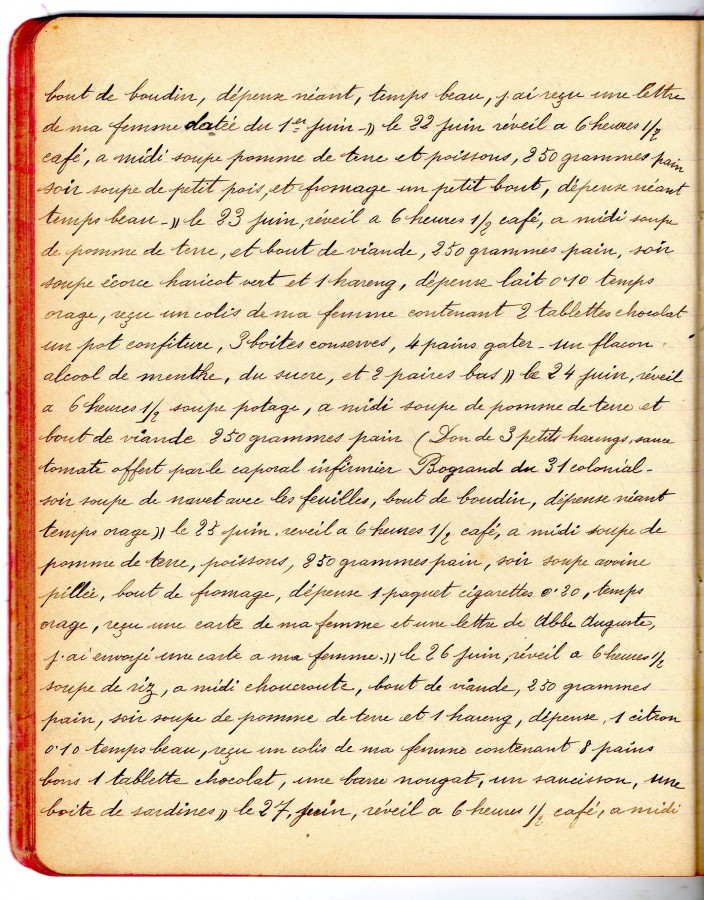 bout de boudin, dépense néant, temps beau, j'ai reçu une lettre
de ma femme datée du 1er juin -)) le 22 juin réveil a 6 heures 1/2
café, a midi soupe pomme de terre et poissons, 250 grammes pain
soir soupe de petit pois, et fromage un petit bout, dépense néant
temps beau -)) le 23 juin, réveil a 6 heures 1/2 café, a midi soupe
de pomme de terre, et bout de viande, 250 grammes pain, soir
soupe écorce haricot vert et 1 hareng, dépense lait 0.10 temps
orage, reçu un colis de ma femme contenant 2 tablettes chocolat
un pot confiture, 3 boites conserves, 4 pains gater - un flacon
alcool de menthe, du sucre, et 2 paires bas )) le 24 juin, réveil
a 6 heures 1/2 soupe potage, a midi soupe de pomme de terre et
bout de viande 250 grammes pain (Don de 3 petits harengs, sauce
tomate offert par le caporal infirmier Bogrand du 31 colonial -
soir soupe de navet avec les feuilles, bout de boudin, dépense néant
temps orage )) le 25 juin, reveil a 6 heures 1/2 café, a midi soupe de
pomme de terre, poissons, 250 grammes pain, soir soupe avoine
pillée, bout de fromage, dépense 1 paquet cigarettes 0.20, temps
orage, reçu une carte de ma femme et une lettre de Abbe Auguste,
j'ai envoyé une carte a ma femme. )) le 26 juin, réveil a 6 heures 1/2
soupe de riz, a midi choucroute, bout de viande, 250 grammes
pain, soir soupe de pomme de terre et 1 hareng, dépense, 1 citron
0.10 temps beau, reçu un colis de ma femme contenant 8 pains
bons 1 tablette chocolat, une barre nougat, un saucisson, une
boite de sardines )) le 27, juin, réveil a 6 heures 1/2 café, a midi